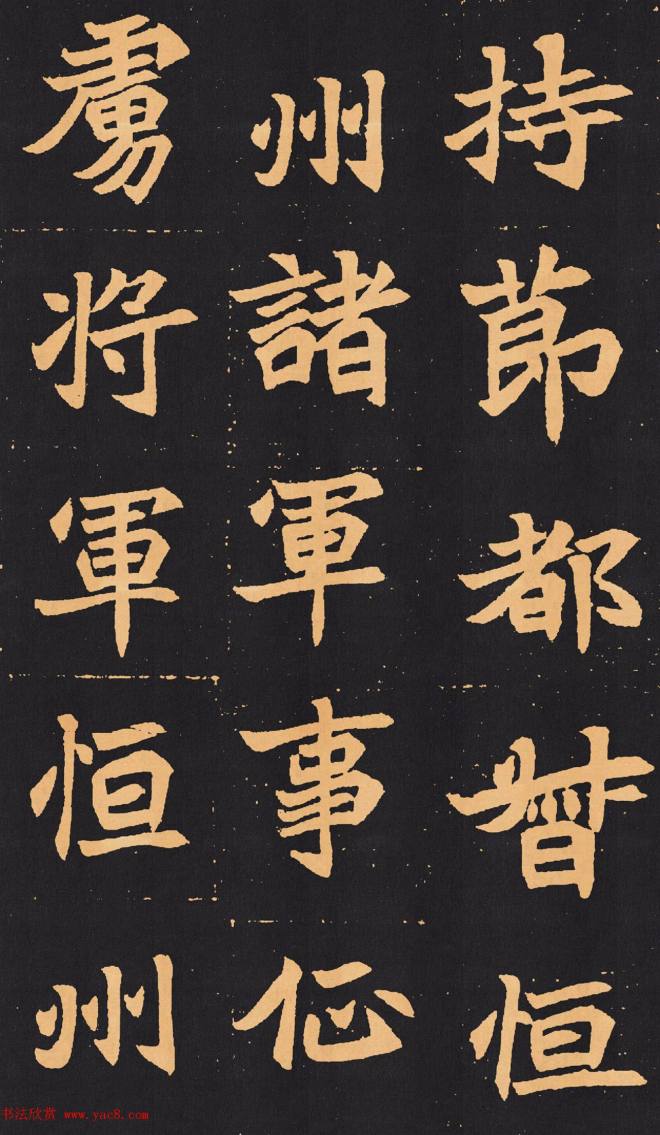 持莭都督恒
州諸軍事征
虜将軍恒州
书法欣赏 www.yac8.com